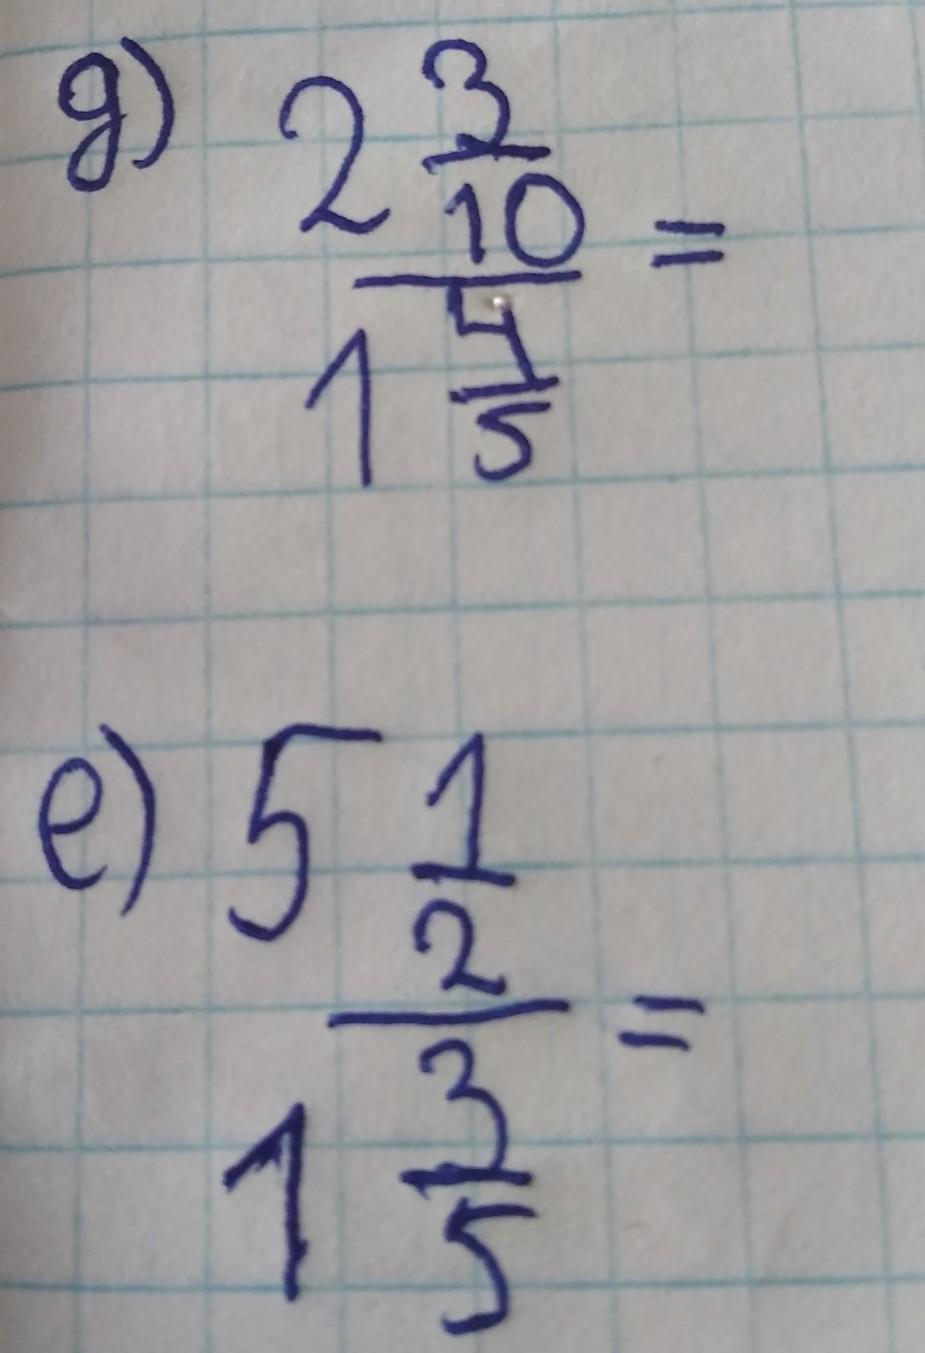 д) 2 3/10 / 1 4/5 =
е) 5 1/2 / 1 3/5 =